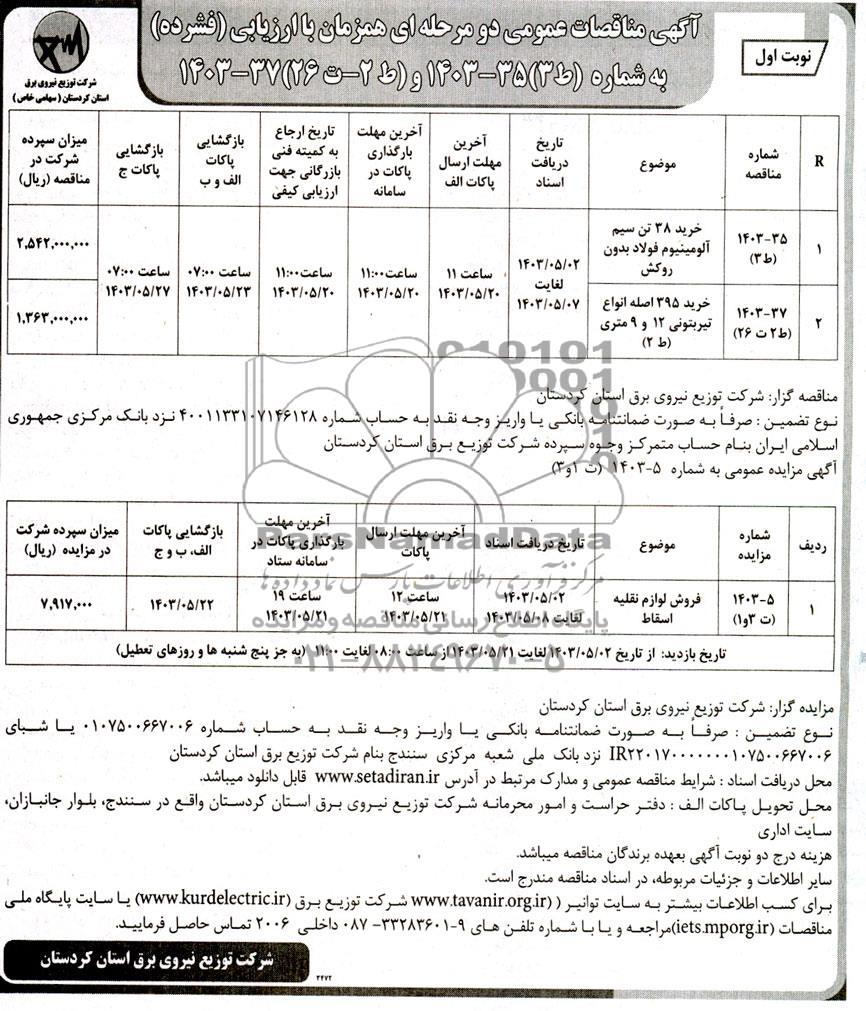 آگهی مناقصات عمومی دو مرحله ای همزمان با ارزیابی (فشرده)
به شماره (ط۳)۳۵-۱۴۰۳ و (ط ۲-ت ۲۶)۳۷-۱۴۰۳
نوبت اول
شرکت توزیع نیروی برق
استان کردستان (سهامی خاص)
R
شماره مناقصه
موضوع
تاریخ دریافت اسناد
آخرین مهلت ارسال پاکات الف
آخرین مهلت بارگذاری پاکات در سامانه
تاریخ ارجاع به کمیته فنی بازرگانی جهت ارزیابی کیفی
بازگشایی پاکات الف و ب
بازگشایی پاکات ج
میزان سپرده شرکت در مناقصه (ریال)
۱
۱۴۰۳-۳۵ (ط۳)
خرید ۳۸ تن سیم آلومینیوم فولاد بدون روکش
۱۴۰۳/۰۵/۰۲ لغایت ۱۴۰۳/۰۵/۰۷
ساعت ۱۱ ۱۴۰۳/۰۵/۲۰
ساعت۱۱:۰۰ ۱۴۰۳/۰۵/۲۰
ساعت۱۱:۰۰ ۱۴۰۳/۰۵/۲۰
ساعت ۰۷:۰۰ ۱۴۰۳/۰۵/۲۳
ساعت ۰۷:۰۰ ۱۴۰۳/۰۵/۲۷
۲,۵۴۲,۰۰۰,۰۰۰
۲
۱۴۰۳-۳۷ (ط۲ ت ۲۶)
خرید ۳۹۵ اصله انواع تیربتونی ۱۲ و ۹ متری (ط ۲)
۱,۳۶۳,۰۰۰,۰۰۰
مناقصه گزار: شرکت توزیع نیروی برق استان کردستان
نوع تضمین : صرفاً به صورت ضمانتنامه بانکی یا واریز وجه نقد به حساب شماره ۴۰۰۱۱۳۳۱۰۷۱۴۶۱۲۸ نزد بانک مرکزی جمهوری
اسلامی ایران بنام حساب متمرکز وجوه سپرده شرکت توزیع برق استان کردستان
آگهی مزایده عمومی به شماره ۵-۱۴۰۳ (ت ۱و۳)
ردیف
شماره مزایده
موضوع
تاریخ دریافت اسناد
آخرین مهلت ارسال پاکات
آخرین مهلت بارگذاری پاکات در سامانه ستاد
بازگشایی پاکات الف، ب و ج
میزان سپرده شرکت در مزایده (ریال)
۱
۱۴۰۳-۵ (ت ۳و۱)
فروش لوازم نقلیه اسقاط
۱۴۰۳/۰۵/۰۲ لغایت ۱۴۰۳/۰۵/۰۸
ساعت ۱۲ ۱۴۰۳/۰۵/۲۱
ساعت ۱۹ ۱۴۰۳/۰۵/۲۱
۱۴۰۳/۰۵/۲۲
۷,۹۱۷,۰۰۰
تاریخ بازدید: از تاریخ ۱۴۰۳/۰۵/۰۲ لغایت ۱۴۰۳/۰۵/۲۱ از ساعت ۰۸:۰۰ لغایت ۱۱:۰۰ (به جز پنج شنبه ها و روزهای تعطیل)
ParsNamadData
مرکز فرآوری اطلاعات پارس نماد داده ها
پایگاه اطلاع رسانی مناقصه و مزایده
۰۲۱-۸۸۳۴۹۶۷۰-۵
مزایده گزار: شرکت توزیع نیروی برق استان کردستان
نوع تضمین : صرفاً به صورت ضمانتنامه بانکی یا واریز وجه نقد به حساب شماره ۰۱۰۷۵۰۰۶۶۷۰۰۶ یا شبای
IR۲۲۰۱۷۰۰۰۰۰۰۰۱۰۷۵۰۰۶۶۷۰۰۶ نزد بانک ملی شعبه مرکزی سنندج بنام شرکت توزیع برق استان کردستان
محل دریافت اسناد : شرایط مناقصه عمومی و مدارک مرتبط در آدرس www.setadiran.ir قابل دانلود میباشد.
محل تحویل پاکات الف : دفتر حراست و امور محرمانه شرکت توزیع نیروی برق استان کردستان واقع در سنندج، بلوار جانبازان،
سایت اداری
هزینه درج دو نوبت آگهی بعهده برندگان مناقصه میباشد.
سایر اطلاعات و جزئیات مربوطه، در اسناد مناقصه مندرج است.
برای کسب اطلاعات بیشتر به سایت توانیر ( (www.tavanir.org.ir شرکت توزیع برق (www.kurdelectric.ir) یا سایت پایگاه ملی
مناقصات (iets.mporg.ir)مراجعه و یا با شماره تلفن های ۹-۳۳۲۸۳۶۰۱-۰۸۷ داخلی ۲۰۰۶ تماس حاصل فرمایید.
شرکت توزیع نیروی برق استان کردستان
۲۴۷۲